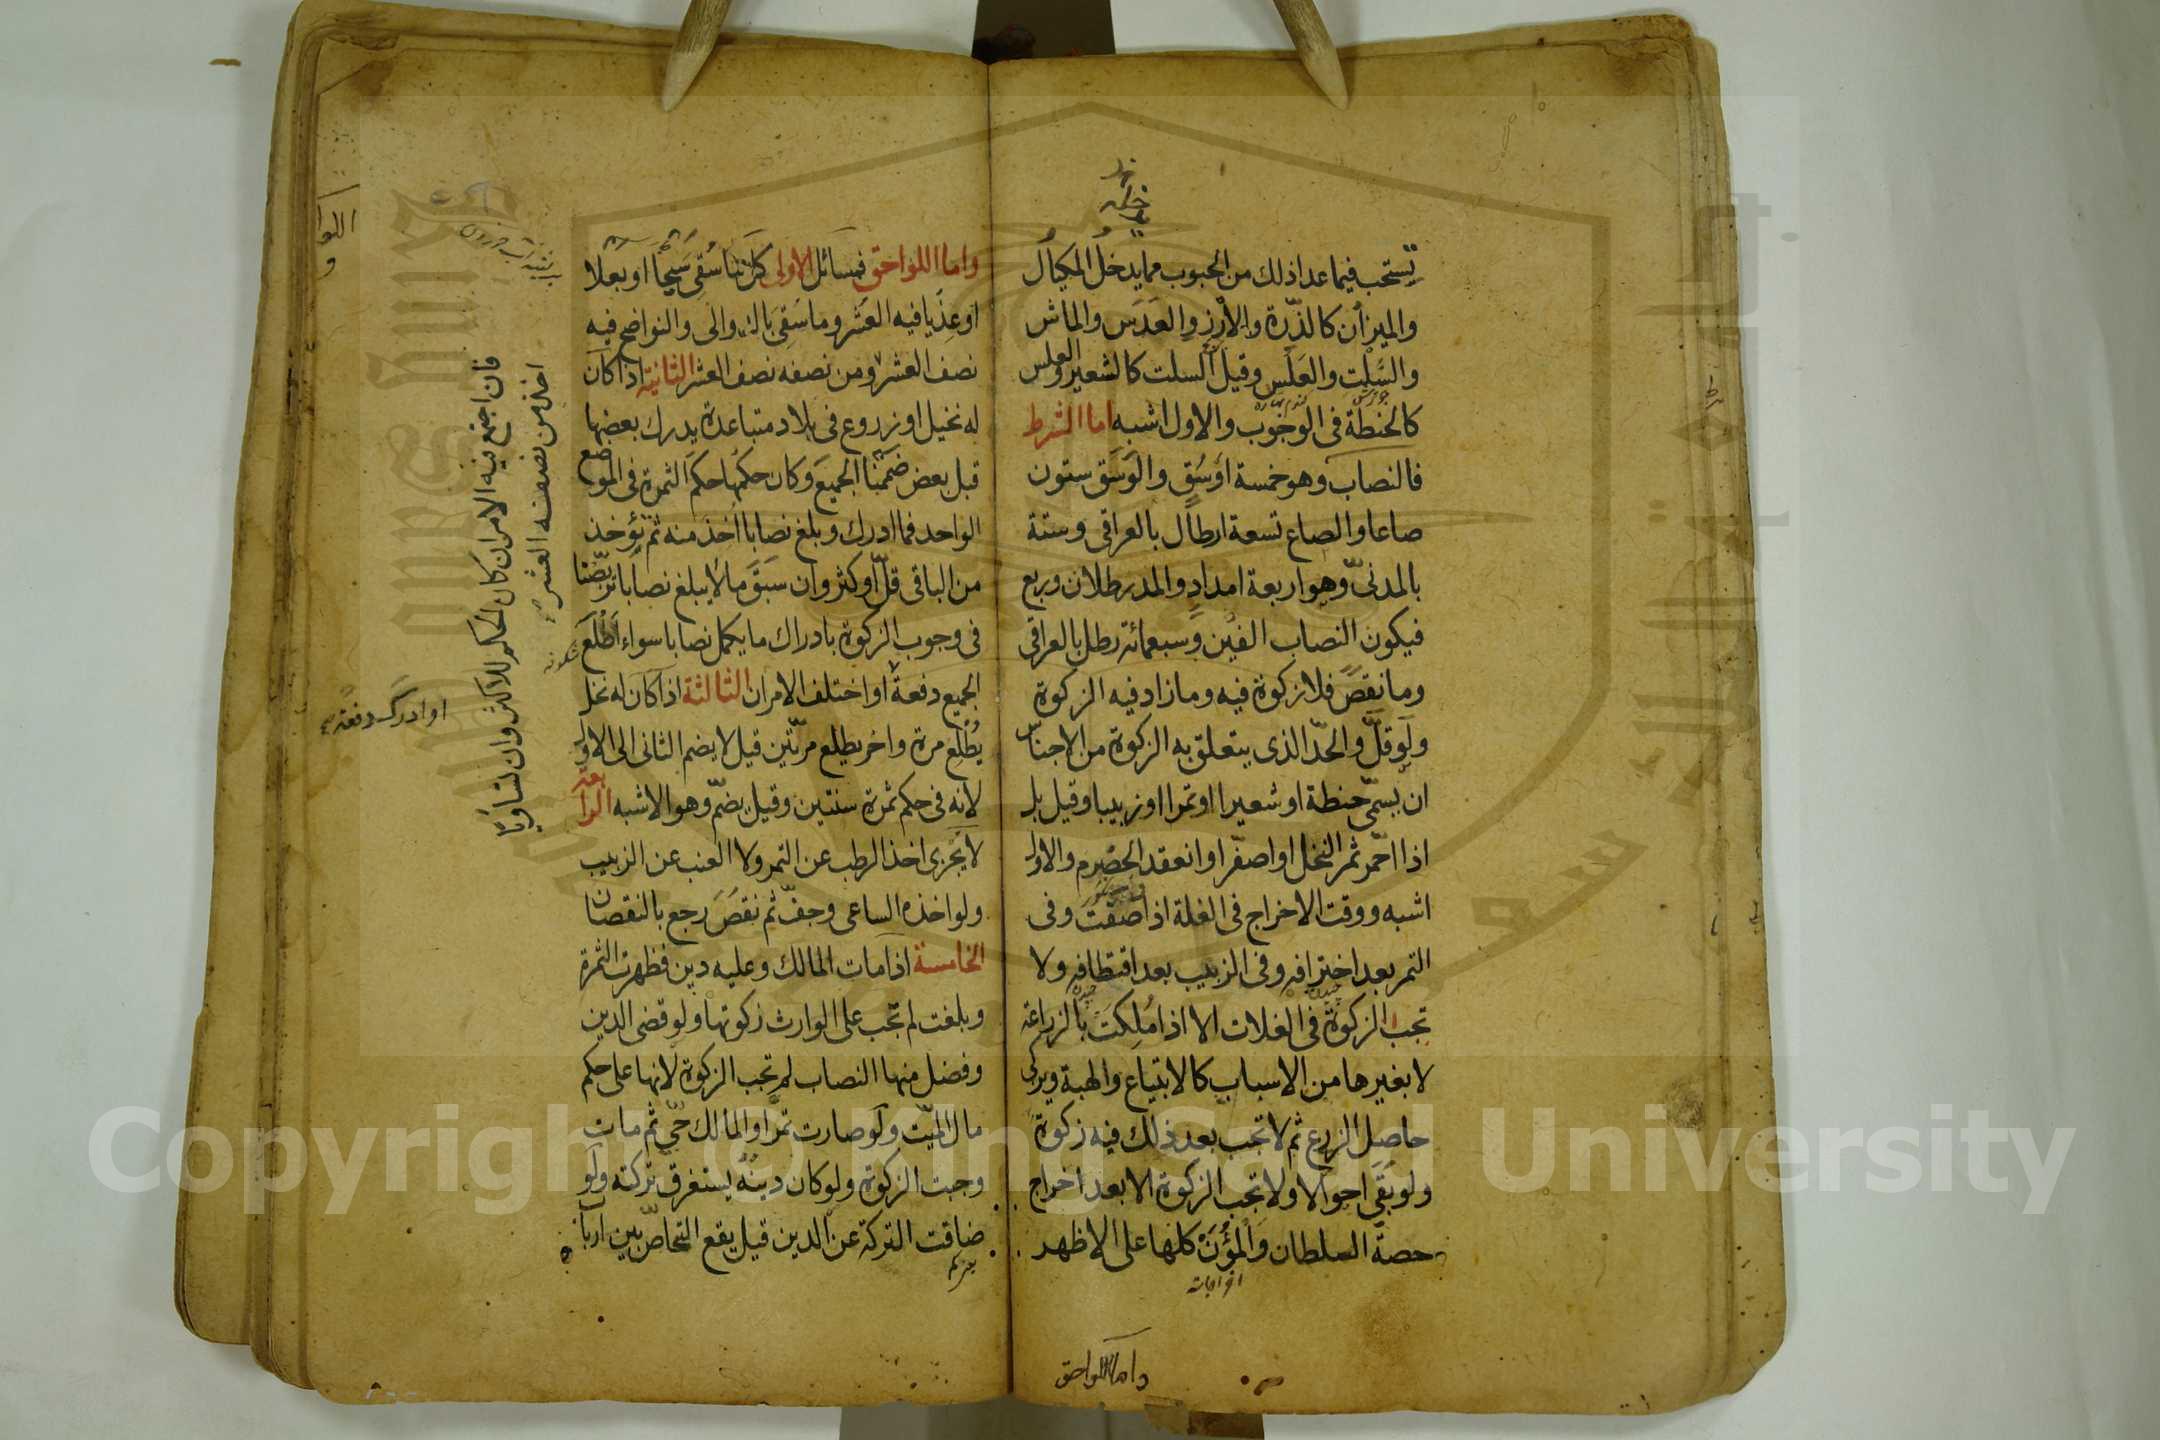 تستحب فيما عدا ذلك من الحبوب مما يدخل المكيال
والميزان كالذّرة والأرز والعَدَس والماش
والسَّلْت والعَلَس وقيل السلت كالشعير والعلس
كالحنطة فى الوجوب والاول اشبه اما الشرط
فالنصاب وهو خمسة اوسُق والوَسَق ستون
صاعا والصاع تسعة ارطال بالعراقى وستة
بالمدنىّ وهو اربعة امداد والمد رطلان وربع
فيكون النصاب الفين وسبعمائة رطل بالعراقى
وما نقص فلا زكوة فيه وما زاد فيه الزكوة
ولو قلّ والحدّ الذى يتعلق به الزكوة من الاجناس
ان يسمّى حنطة او شعيرا او تمرا او زبيبا وقيل بل
اذا احمر ثمر النخل او اصفّر او انعقد الحصرم والاول
اشبه ووقت الاخراج فى الغلة اذا صفّت وفى
التمر بعد اخترافه وفى الزبيب بعد اقتطافه ولا
تجب الزكوة فى الغلات الا اذا مُلِكَت بالزراعة
لا بغيرها من الاسباب كالابتياع والهبة ويزكى
حاصل الزرع ثم لا تجب بعد ذلك فيه زكوة
ولو بقى احوالا ولا تجب الزكوة الا بعد اخراج
حصّة السلطان والمُؤَن كلها على الاظهر
اخراجات
واما اللواحق
واما اللواحق فمسائل الاولى كل ما سُقى سَيحًا او بعلا
او عِذيا فيه العشر وما سقى بالدوالى والنواضح فيه
نصف العشر ومن نصفه نصف العشر الثانية اذا كان
له نخيل او زروع فى بلاد متباعدة يدرك بعضها
قبل بعض ضممنا الجميع وكان حكمها حكم الثمرة فى الموضع
الواحد فما ادرك وبلغ نصابا اُخذ منه ثم يؤخذ
من الباقى قلّ او كثر وان سبق ما لا يبلغ نصابا تربّصنا
فى وجوب الزكوة بادراك ما يكمل نصابا سواء اَطْلَع
الجميع دفعة او اختلف الامران الثالثة اذا كان له نخل
يُطْلِع مرة واخر يطلع مرّتين قيل لا يضم الثانى الى الاول
لانه فى حكم ثمرة سنتين وقيل يضمّ وهو الاشبه الرابعة
لا يجزى اخذ الرطب عن التمر ولا العنب عن الزبيب
ولو اخذه الساعى وجفّ ثم نقصَ رجع بالنقصان
الخامسة اذا مات المالك وعليه دين فظهرت الثمرة
وبلغت لم تجب على الوارث زكوتها ولو قضى الدين
وفضل منها النصاب لم تجب الزكوة لانها على حكم
مال الميّت ولو صارت تمرًا والمالك حىّ ثم مات
وجبت الزكوة ولو كان دينهُ يستغرق تركته ولو
ضاقت التركة عن الدين قيل يقع التحاصّ بين اربا
فان اجتمع فيه الامران كان الحكم للاكثر وان تساويا
اخذ من نصفه العشر
او ادرك دفعة